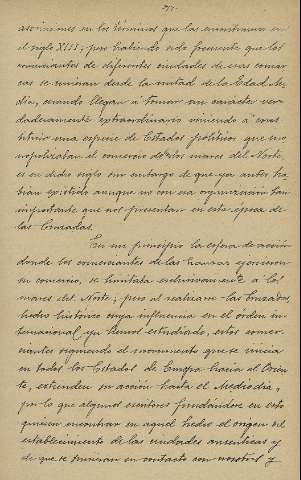 asociaciones en los términos que las encontramos en
el siglo XIII; pero habiendo sido frecuente que los
comerciantes de diferentes ciudades de esas comar
cas se unieran desde la mitad de la Edad Me-
dia, cuando llegan a tomar un carácter ver
daderamente extraordinario viniendo a cons
tituir una especie de Estados políticos que mo
nopolizaban el comercio de los mares del Norte,
es en dicho siglo sin embargo de que ya antes ha
bian existido aunque no con esa organización tan
importante que nos presentan en esta época de
las Cruzadas.
En un principio la esfera de acción
donde los comerciantes de las hansas ejercieron
su comercio, se limitaba exclusivamente a los
mares del Norte; pero al realizarse las Cruzadas,
hecho histórico cuya influencia en el orden in
ternacional ya hemos estudiado, estos comer-
ciantes siguiendo el movimiento que se inicia
en todos los Estados de Europa hacia el Orien
te, extienden su acción hasta el Mediodia,
por lo que algunos escritores fundándose en esto
quieren encontrar en aquel hecho el origen del
establecimiento de las ciudades anseáticas y
de que se pusieran en contacto con nosotros y